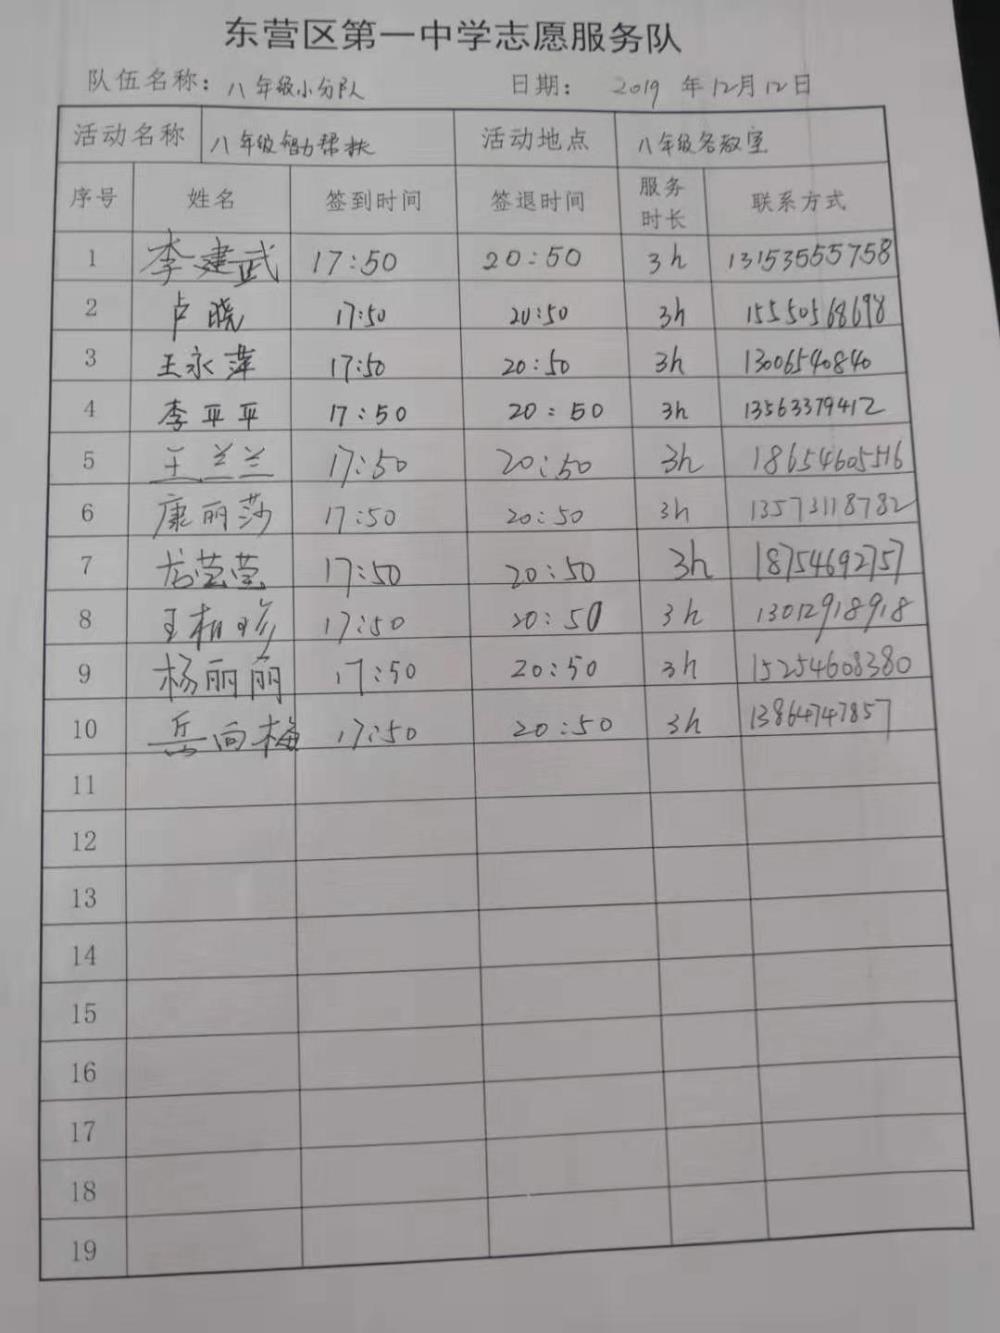 东营区第一中学志愿服务队
队伍名称：八年级小分队 日期： 2019 年 12月 12日
活动名称 八年级智力帮扶 活动地点 八年级各教室
序号 姓名 签到时间 签退时间 服务时长 联系方式
1 李建武 17:50 20:50 3h 13153555758
2 卢晓 17:50 20:50 3h 15550568698
3 王永萍 17:50 20:50 3h 13006540840
4 李平平 17:50 20:50 3h 13563379412
5 王兰兰 17:50 20:50 3h 18654605516
6 康丽莎 17:50 20:50 3h 13573118782
7 尤莹莹 17:50 20:50 3h 18754692757
8 17:50 20:50 3h 13012918918
9 杨丽丽 17:50 20:50 3h 15254608380
10 岳向梅 17:50 20:50 3h 13864747857
11
12
13
14
15
16
17
18
19